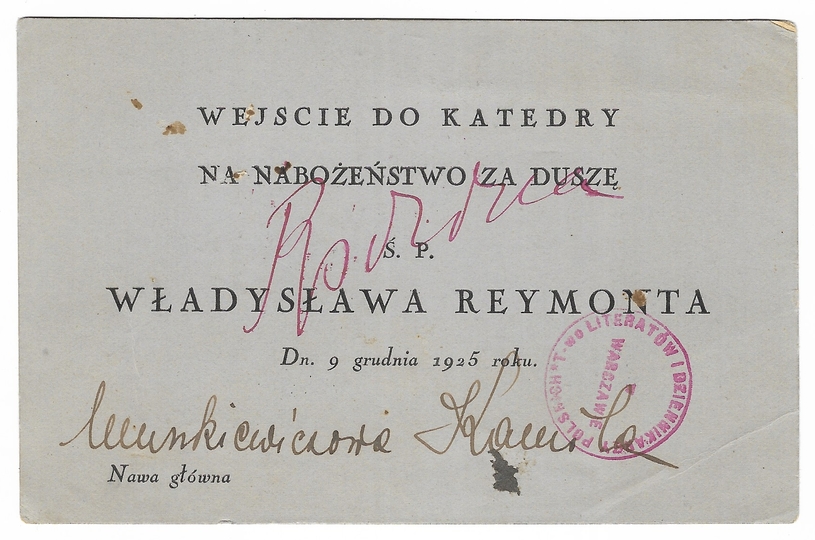 WEJSCIE DO KATEDRY
NA NABOŻEŃSTWO ZA DUSZĘ
Rodzina
Ś. P.
WŁADYSŁAWA REYMONTA
Dn. 9 grudnia 1925 roku.
T-WO LITERATÓW I DZIENNIKARZY POLSKICH
WARSZAWIE
Kamila
Nawa główna